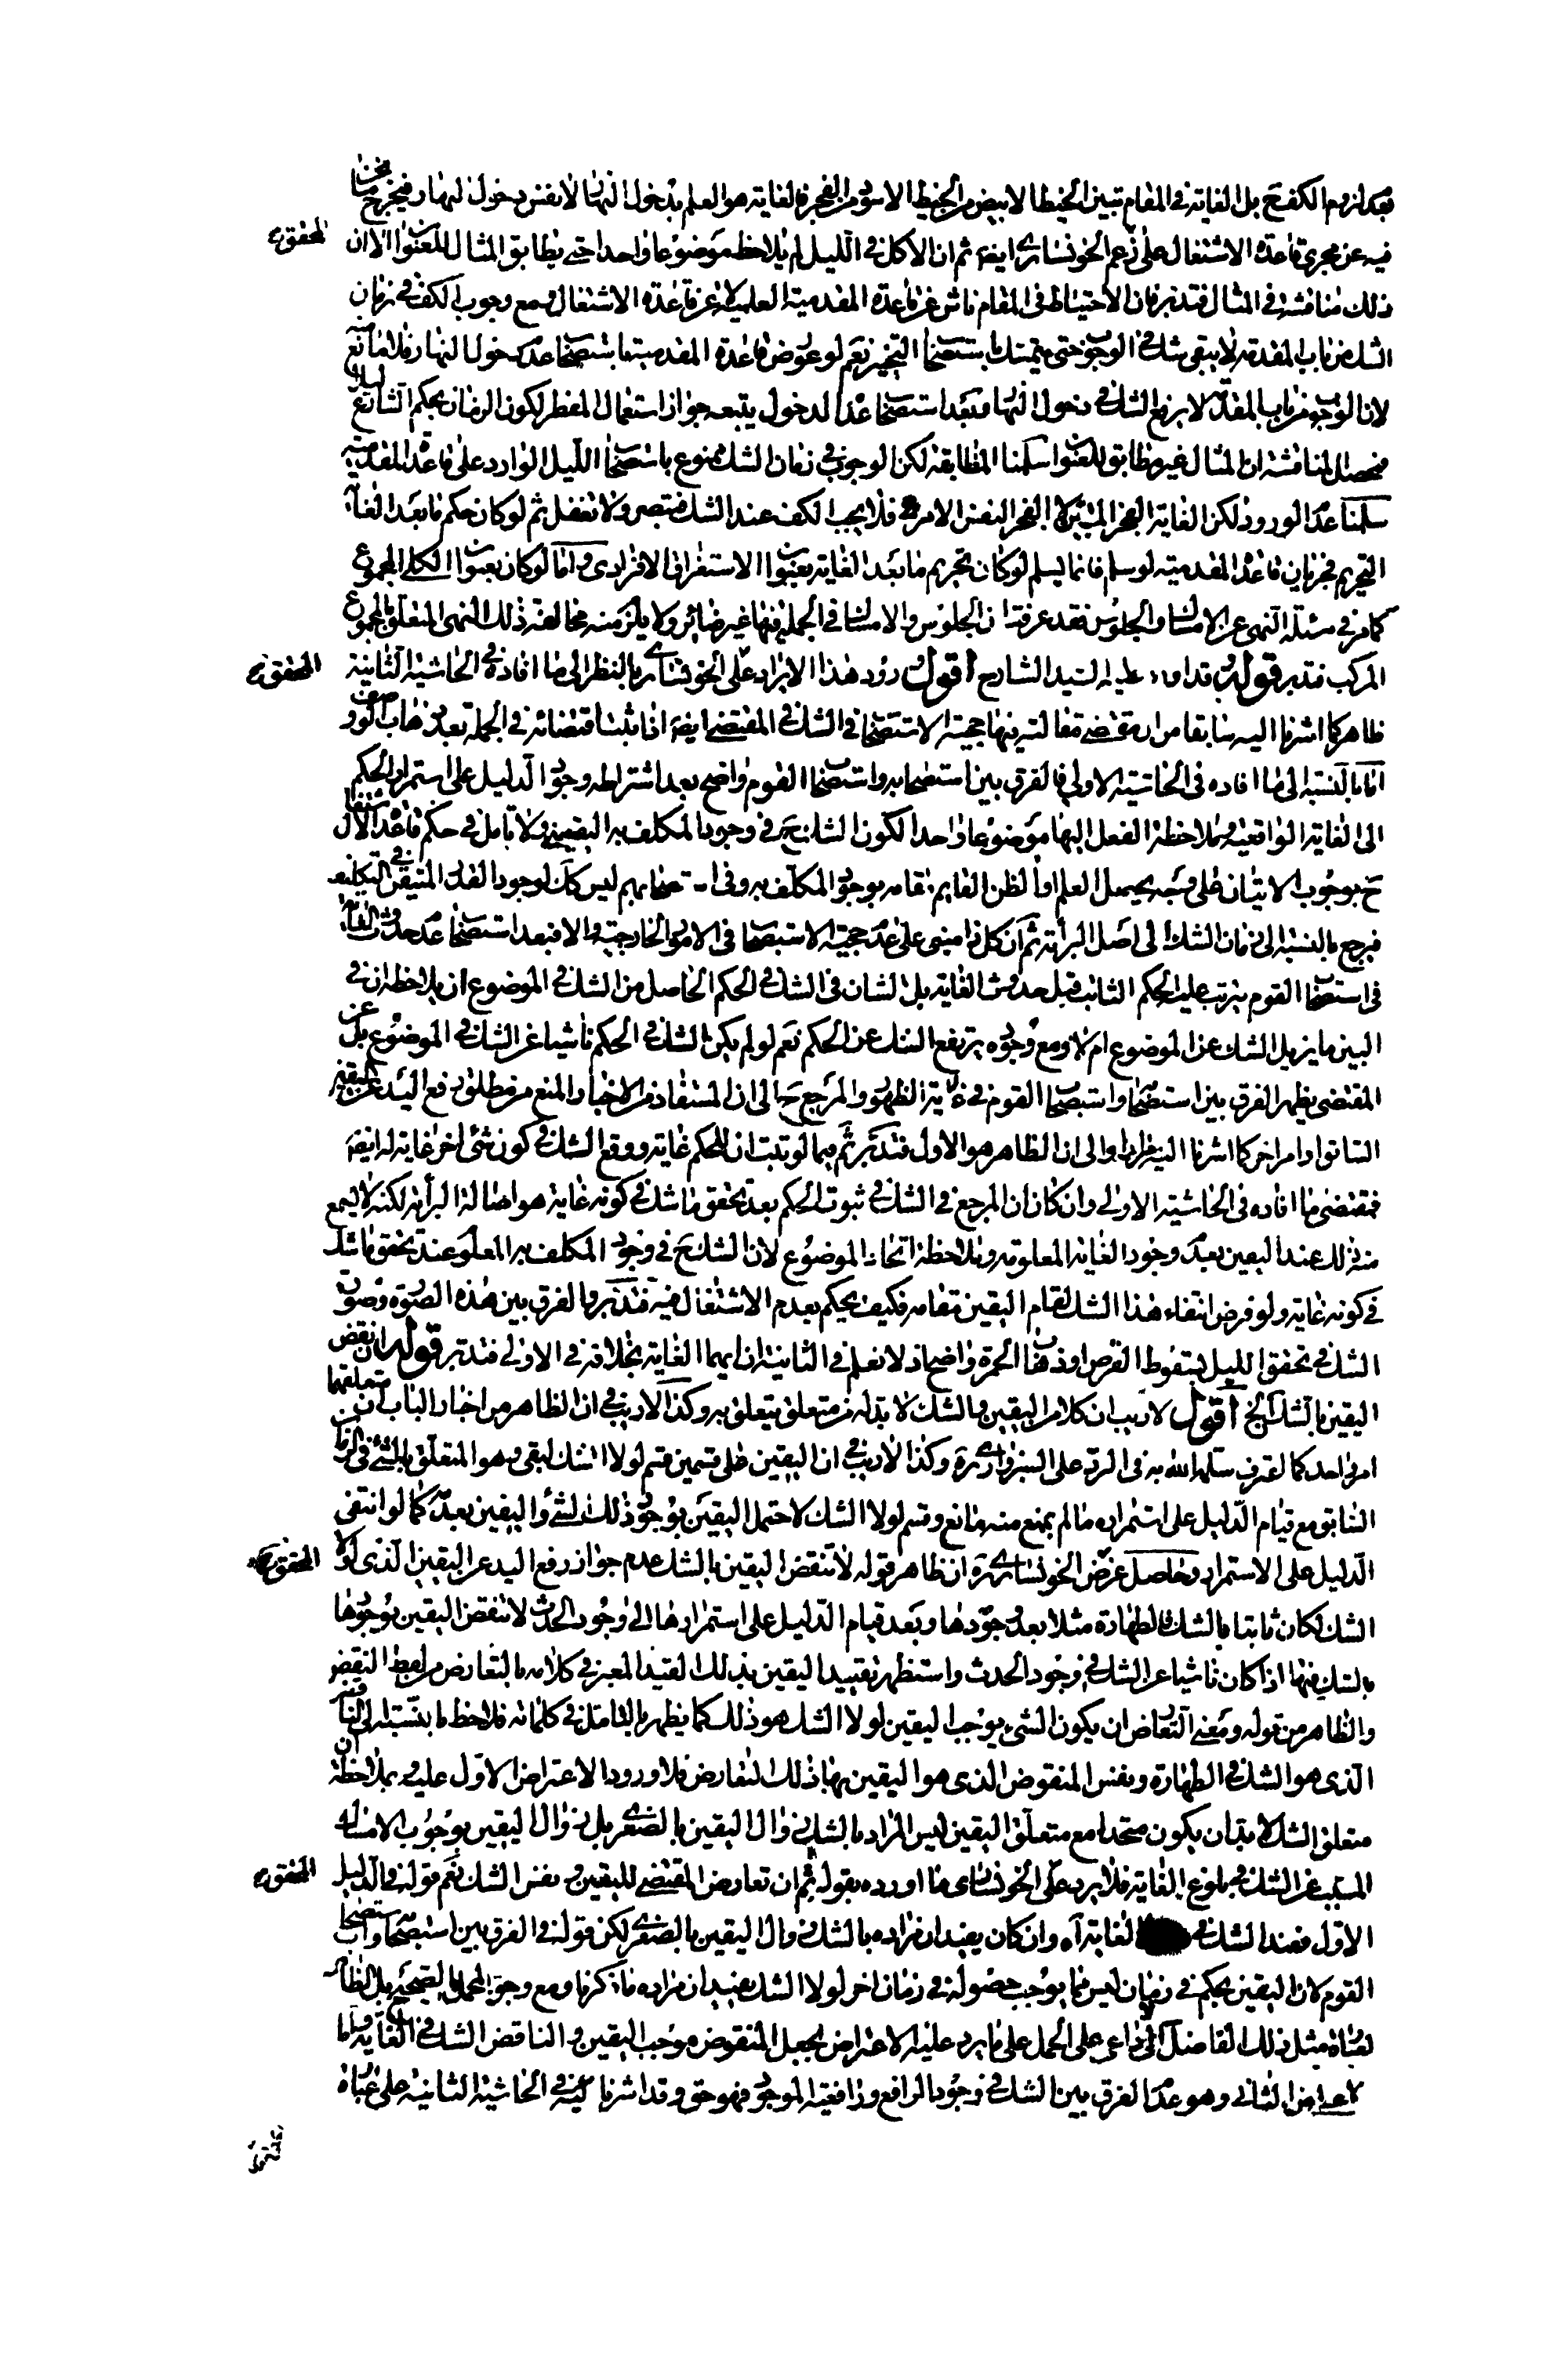 بعد لزوم الكف ح بل الغاية في المقام تبين الخيط الابيض من الخيط الاسود من الفجر فالغاية هو العلم بدخول النهار لا نفس دخول النهار فيخرج ما نحن
فيه عن مجرى قاعدة الاشتغال على زعم الخونساري ايضا ثم ان الاكل في الليل لم يلاحظ موضوعا واحدا حتى يطابق المثال للعنوان الا ان
المحقق
ذلك مناقشة في المثال فتدبر فان الاحتياط في المقام ناش عن قاعدة المقدمية العلمية لا عن قاعدة الاشتغال ومع وجوب الكف في زمان
الشك من باب المقدمة لا يبقى شك في الوجوب حتى يتمسك باستصحاب التخيير نعم لو عورض قاعدة المقدمية باستصحاب عدم دخول النهار فلا مانع منه
لان الوجوب من باب المقدمة لا يرفع الشك في دخول النهار فبعد استصحاب عدم الدخول يتبعه جواز استعمال المفطر لكون الزمان بحكم الشارع ليلا
فحصل المناقشة ان المثال غير مطابق للعنوان سلمنا المطابقة لكن الوجوب في زمان الشك ممنوع باستصحاب الليل الوارد على قاعدة المقدمية
سلمنا عدم الورود لكن الغاية الفجر المتبين لا الفجر النفس الامري فلا يجب الكف عند الشك فتبصر ولا تغفل ثم لو كان حكم ما بعد الغاية
التحريم فجريان قاعدة المقدمية لو سلم فانما يسلم لو كان تحريم ما بعد الغاية بعنوان الاستغراق الافرادي واما لو كان بعنوان الكلي المجموع
كما مر في مسئلة النهي عن الامساك والجلوس فقد عرفت ان الجلوس والامساك في الجملة فيها غير ضائر ولا يلزم منه مخالفة ذلك النهي المتعلق بالمجموع
المركب فتدبر قوله قد اورد عليه السيد الشارح اقول ورود هذا الايراد على الخونساري بالنظر الى ما افاده في الحاشية الثانية
المحقق
ظاهر كما اشرنا اليه سابقا من ان مقتضى مقالته فيها حجية الاستصحاب في الشك في المقتضى ايضا اذا ثبت اقتضائه في الجملة بعد ذهاب الوصف
اما بالنسبة الى ما افاده في الحاشية الاولى فالفرق بين استصحابه واستصحاب القوم واضح بعد اشتراطه وجود الدليل على استمرار الحكم
الى الغاية الواقعية بملاحظة الفعل اليها موضوعا واحدا لكون الشك ح في وجود المكلف به اليقيني فلا تامل في حكم قاعدة الاشتغال
ح بوجوب الاتيان على وجه يحصل العلم او الظن القايم مقامه بوجود المكلف به وفي استصحابهم ليس كك لوجود القدر المتيقن في التكليف
فيرجع بالنسبة الى زمان الشك الى اصل البرائة ثم ان كلامنا مبني على عدم حجية الاستصحاب في الامور الخارجية والا فبعد استصحاب عدم حدوث الغاية
في استصحاب القوم يترتب عليه الحكم الثابت قبل حدوث الغاية بل الشان في الشك في الحكم الحاصل من الشك في الموضوع ان يلاحظ ان في
البين ما يزيل الشك عن الموضوع ام لا ومع وجوده يرتفع الشك عن الحكم نعم لو لم يكن الشك في الحكم ناشيا عن الشك في الموضوع بل عن
المقتضى يظهر الفرق بين استصحابه واستصحاب القوم في غاية الظهور والمرجع ح الى ان المستفاد من الاخبار المنع من مطلق رفع اليد عن اليقين
السابق او امر اخر كما اشرنا اليه مرارا والى ان الظاهر هو الاول فتدبر ثم فيما لو ثبت ان للحكم غاية ووقع الشك في كون شئ اخر غاية له ايضا
فمقتضى ما افاده في الحاشية الاولى وان كان ان المرجع في الشك في ثبوت الحكم بعد تحقق ما شك في كونه غاية هو اصالة البرائة لكنه لا يسمع
منه ذلك عند اليقين بعدم وجود الغاية المعلومة وملاحظة اتحاد الموضوع لان الشك ح في وجود المكلف به المعلوم عند تحقق ما شك
في كونه غاية ولو فرض انتفاء هذا الشك لقام اليقين مقامه فكيف يحكم بعدم الاشتغال فيه فتدبر والفرق بين هذه الصورة وصورة
الشك في تحقق الليل بسقوط القرص او ذهاب الحمرة واضح اذ لا نعلم في الثانية ان ايهما الغاية بخلافه في الاولى فتدبر قوله ان نقض
اليقين بالشك الخ اقول لا ريب ان كلا من اليقين والشك لا بد له من متعلق يتعلق به وكذا لا ريب في ان الظاهر من اخبار الباب ان متعلقهما
امر واحد كما اعترف سلمه الله به في الرد على السبزواري ره وكذا لا ريب في ان اليقين على قسمين قسم لولا الشك لبقي وهو المتعلق بالشئ في الزمان
السابق مع قيام الدليل على استمراره ما لم يمنع منه مانع وقسم لولا الشك لاحتمل اليقين بوجود ذلك الشئ واليقين بعدمه كما لو انتفى
الدليل على الاستمرار وحاصل غرض الخونساري ره ان ظاهر قوله لا تنقض اليقين بالشك عدم جواز رفع اليد عن اليقين الذي لولا
المحقق
الشك لكان ثابتا بالشك فالطهارة مثلا بعد وجودها وبعد قيام الدليل على استمرارها الى وجود الحدث لا تنقض اليقين بوجودها
بالشك فيها اذا كان ناشيا عن الشك في وجود الحدث واستظهر تقييد اليقين بذلك القيد المعبر في كلامه بالتعارض من لفظ النقض
والظاهر من قوله ومعنى التعارض ان يكون الشئ يوجب اليقين لولا الشك هو ذلك كما يظهر بالتامل في كلماته فلاحظ ما بنسبته الى الناقض
الذي هو الشك في الطهارة ونفس المنقوض الذي هو اليقين بها ذلك التعارض فلا ورود الاعتراض الاول عليه بملاحظة ان
متعلق الشك لا بد ان يكون متحدا مع متعلق اليقين ليس المراد بالشك زوال اليقين بالصغرى بل زوال اليقين بوجوب الامساك
المسبب عن الشك في بلوغ الغاية فلا يرد على الخونساري ما اورده بقوله ثم ان تعارض المقتضى لليقين ونفس الشك نعم قوله في الدليل
المحقق
الاول فعند الشك في الغاية اه وان كان يفيد ان مراده بالشك زوال اليقين بالصغرى لكن قوله في الفرق بين استصحابه واستصحاب
القوم لان اليقين بحكم في زمان ليس مما يوجب حصوله في زمان اخر لولا الشك يفيد ان مراده ما ذكرنا ومع وجود المحمل الصحيح بل الظاهر
لعبارة مثل ذلك الفاضل لا داعي على الحمل على ما يرد عليه الاعتراض بجعل المنقوض موجب اليقين والناقض الشك في الغاية واما
الاعتراض الثاني وهو عدم الفرق بين الشك في وجود الرافع ورافعية الموجود فهو حق وقد اشرنا اليه في الحاشية الثانية على عبارة